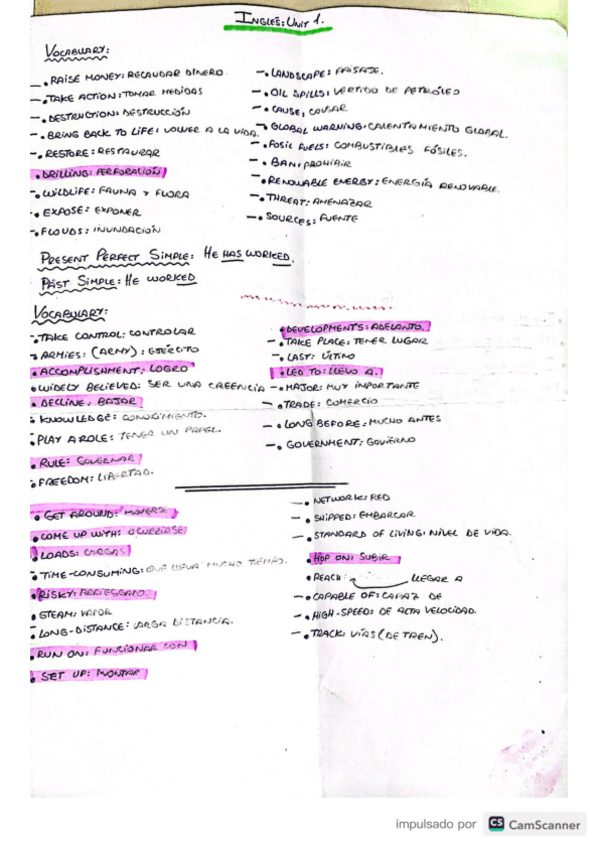 INGLÉS: UNIT 1.
VOCABULARY:
- • RAISE MONEY: RECAUDAR DINERO.
- • TAKE ACTION: TOMAR MEDIDAS
- • DESTRUCTION: DESTRUCCIÓN
- • BRING BACK TO LIFE: VOLVER A LA VIDA.
- • RESTORE: RESTAURAR
• DRILLING: PERFORACIÓN
- • WILDLIFE: FAUNA Y FLORA
- • EXPOSE: EXPONER
- • FLOUDS: INUNDACIÓN
- • LANDSCAPE: PAISAJE.
- • OIL SPILLS: VERTIDO DE PETRÓLEO
- • CAUSE: CAUSAR
- • GLOBAL WARNING: CALENTAMIENTO GLOBAL.
- • FOSIL FUELS: COMBUSTIBLES FÓSILES.
- • BAN: PROHIBIR
- • RENOWABLE ENERGY: ENERGÍA RENOVABLE.
- • THREAT: AMENAZAR
- • SOURCES: FUENTE
PRESENT PERFECT SIMPLE: HE HAS WORKED.
PAST SIMPLE: HE WORKED
VOCABULARY:
- • TAKE CONTROL: CONTROLAR
• ARMIES: (ARMY): EJÉRCITO
• ACCOMPLISAMENT: LOGRO
• WIDELY BELIEVED: SER UNA CREENCIA
• DECLINE: BAJAR
• KNOWLEDGE: CONOCIMIENTO.
• PLAY A ROLE: TENER UN PAPEL.
• RULE: GOVERNAR
• FREEDOM: LIBERTAD.
• DEVELOPMENTS: ADELANTO.
- • TAKE PLACE: TENER LUGAR
- • LAST: ÚLTIMO
• LED TO: LLEVO A.
- • MAJOR: MUY IMPORTANTE
- • TRADE: COMERCIO
- • LONG BEFORE: MUCHO ANTES
- • GOVERNMENT: GOVIERNO
• GET AROUND: MOVERSE
• COME UP WITH: OCURRIRSE
• LOADS: CARGAS
• TIME-CONSUMING: QUE LLEVA MUCHO TIEMPO.
• RISKY: ARRIESGADO.
• STEAM: VAPOR
• LONG-DISTANCE: LARGA DISTANCIA.
• RUN ON: FUNCIONAR CON
• SET UP: MONTAR
- • NETWORK: RED
- • SHIPPED: EMBARCAR
- • STANDARD OF LIVING: NIVEL DE VIDA.
• HOP ON: SUBIR
• REACH: LLEGAR A
- • CAPABLE OF: CAPAZ DE
- • HIGH-SPEED: DE ALTA VELOCIDAD.
- • TRACK: VÍAS (DE TREN).
impulsado por CS CamScanner